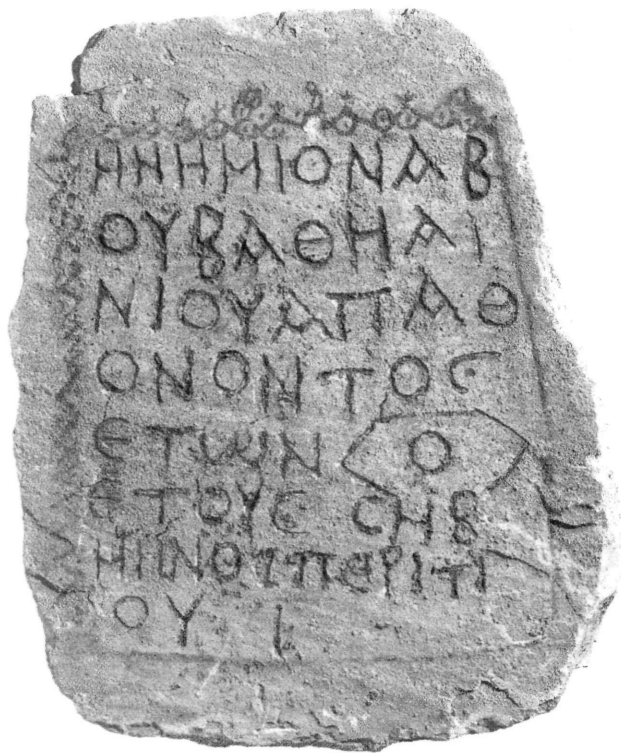 ΜΝΗΜΙΟΝΑΒ
ΟΥΒΑΘΗΑΙ
ΝΙΟΥΑΠΑΘ
ΟΝΟΝΤΟС
ЄΤΩΝ Ο
ЄΤΟΥС СΗΒ
ΜΗΝΟС ΠЄΡΙΤΙ
ΟΥ Ι